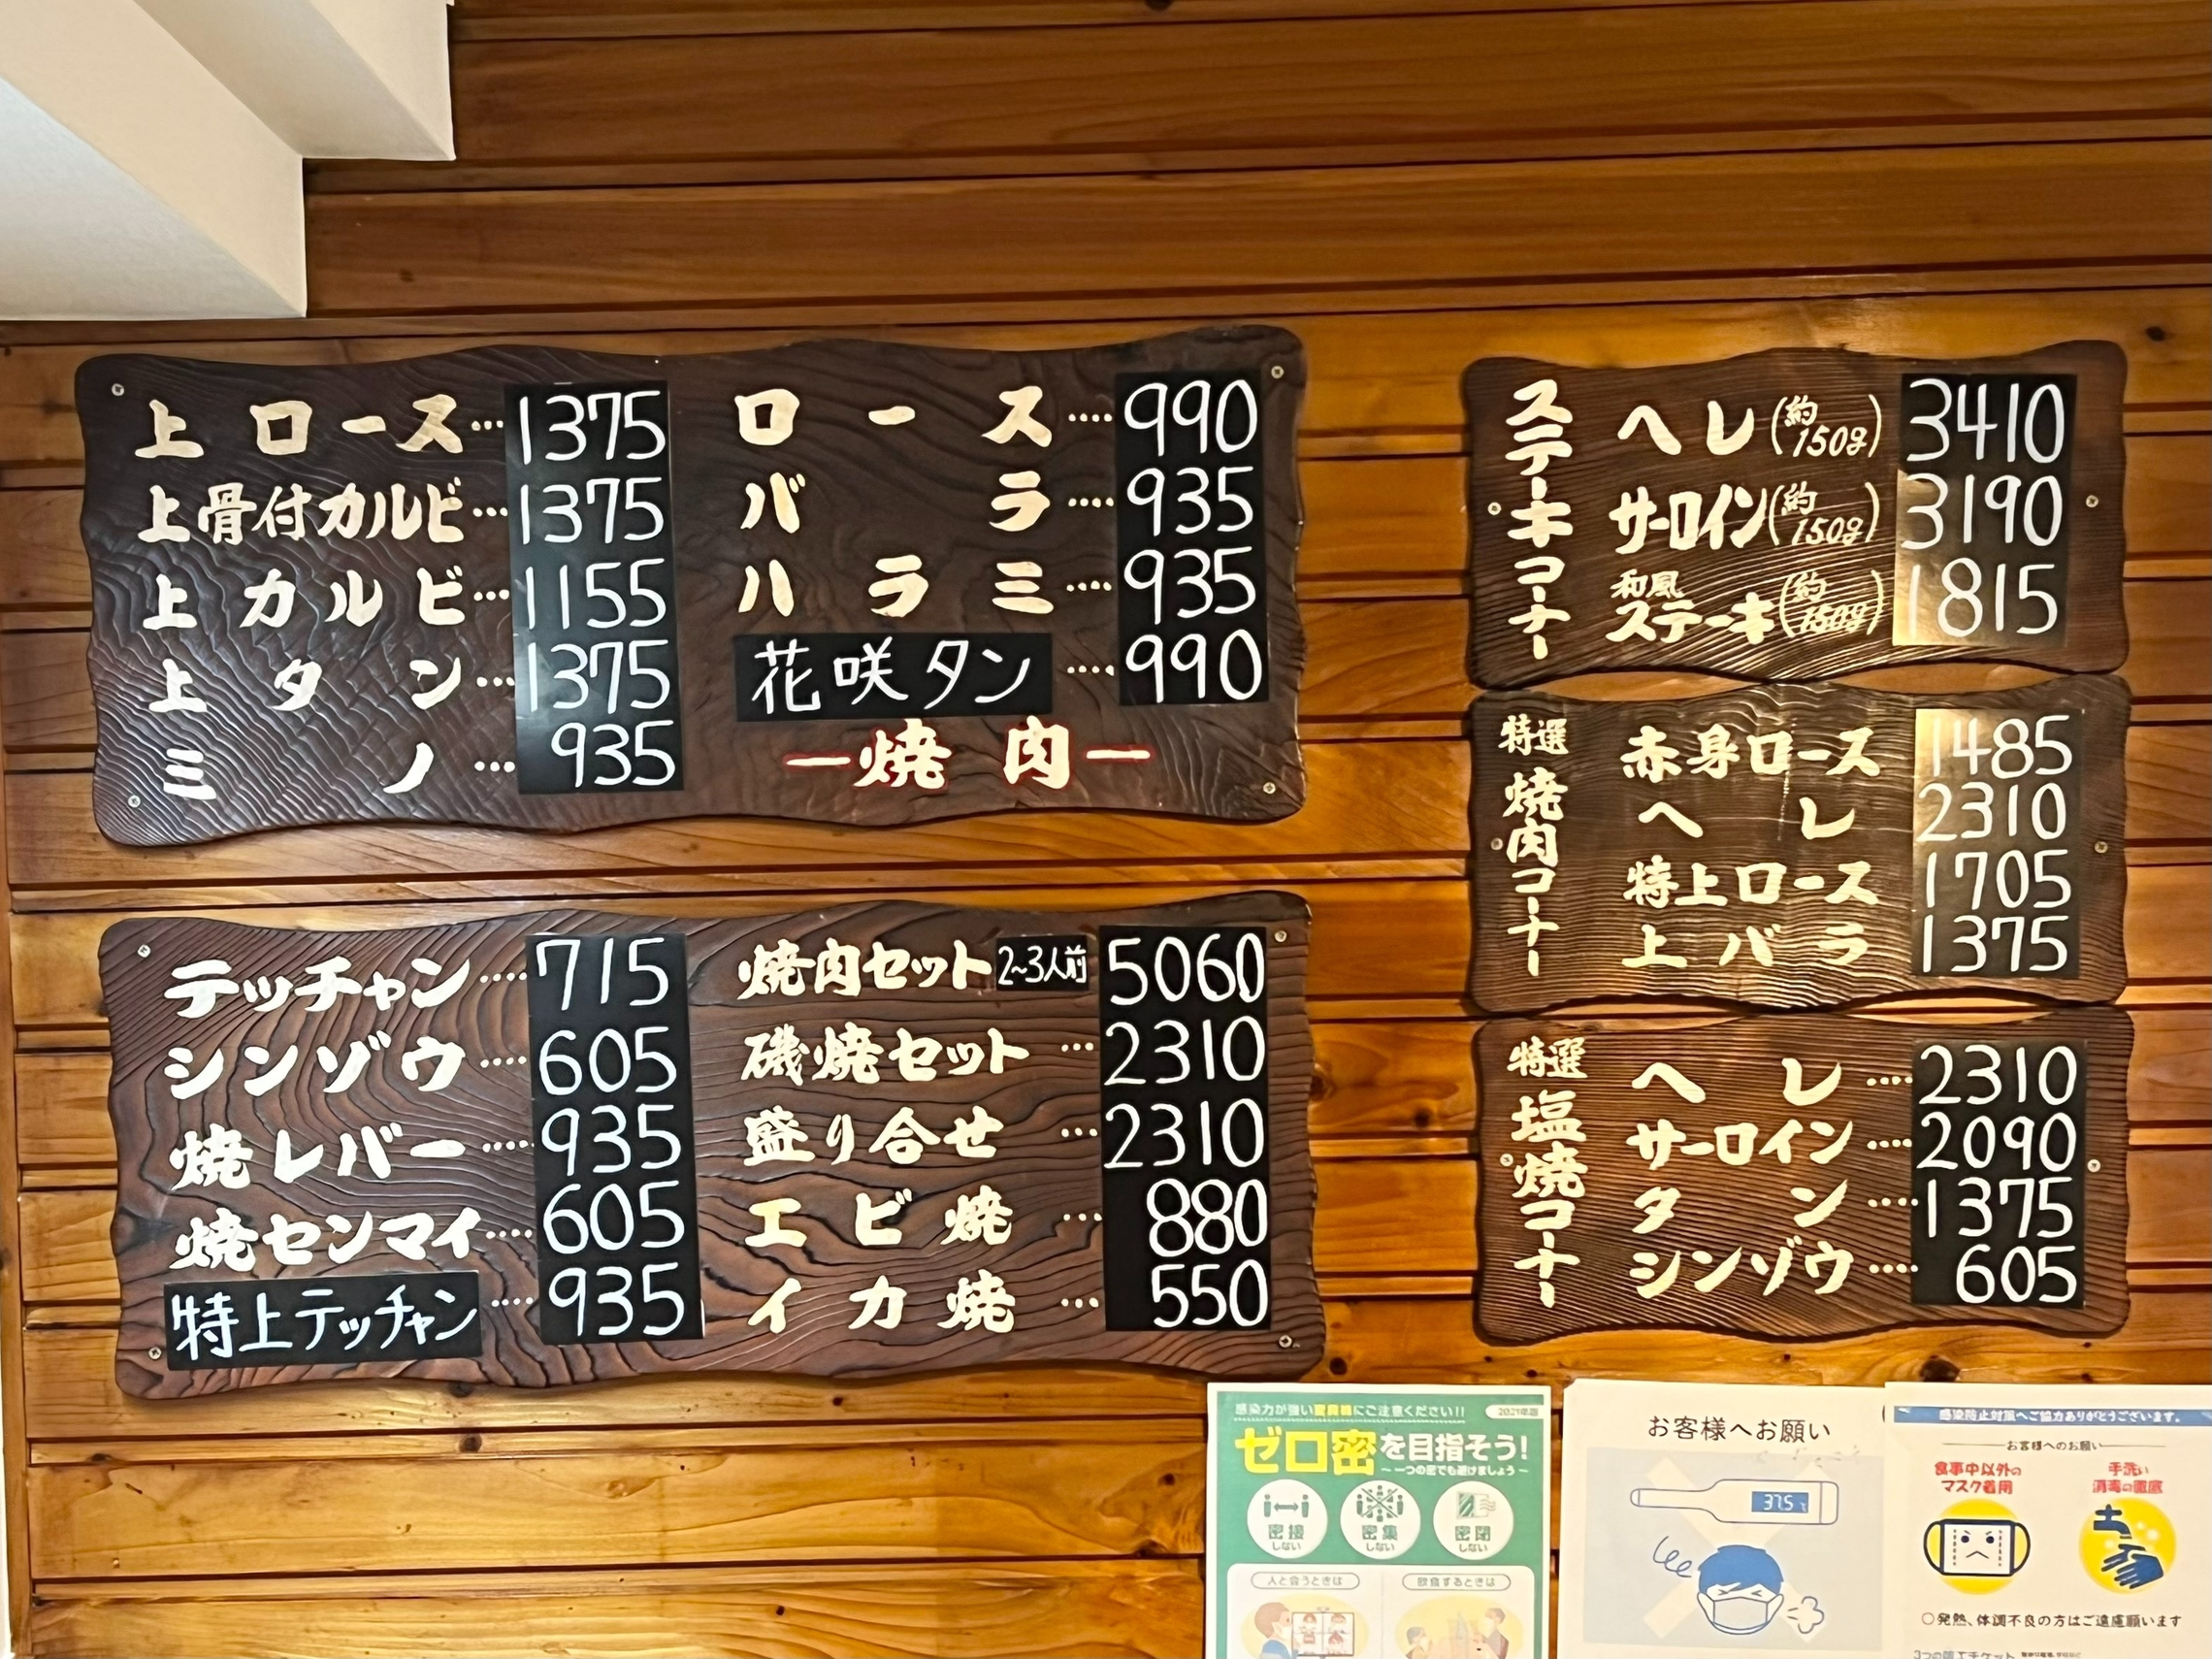 上ロース…1375
上骨付カルビ…1375
上カルビ…1155
上タン…1375
ミノ…935
ロース…990
バラ…935
ハラミ…935
花咲タン…990
ー焼肉ー
テッチャン…715
シンゾウ…605
焼レバー…935
焼センマイ…605
特上テッチャン…935
焼肉セット2~3人前 5060
磯焼セット…2310
盛り合せ…2310
エビ焼…880
イカ焼…550
ステーキコーナー
ヘレ(約150g) 3410
サーロイン(約150g) 3190
和風ステーキ(約150g) 1815
特選焼肉コーナー
赤身ロース 1485
ヘレ 2310
特上ロース 1705
上バラ 1375
特選塩焼コーナー
ヘレ…2310
サーロイン…2090
タン…1375
シンゾウ…605
感染力が強い変異株にご注意ください!!
2021年版
ゼロ密を目指そう!
~一つの密でも避けましょう~
密接しない
密集しない
密閉しない
人と会うときは
飲食するときは
お客様へお願い
37.5℃
感染防止対策へご協力ありがとうございます。
お客様へのお願い
食事中以外のマスク着用
手洗い消毒の徹底
○発熱、体調不良の方はご遠慮願います